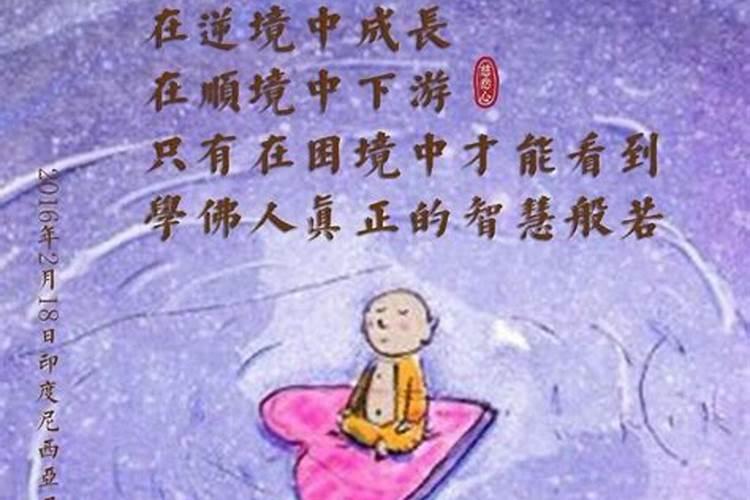 在逆境中成長
在順境中下游
慈悲心
只有在困境中才能看到
學佛人眞正的智慧般若
2016年2月18日印度尼西亞